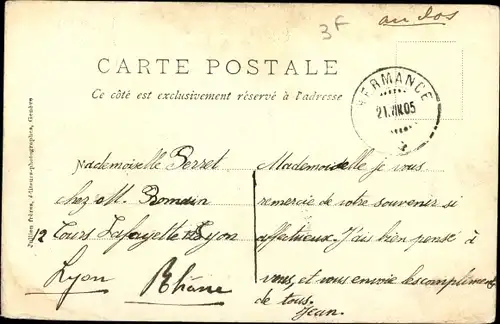 3F
au dos
CARTE POSTALE
Ce côté est exclusivement réservé à l'adresse
HERMANCE
21.VIII.05
Jullien frères, éditeurs-photographes, Genève
Mademoiselle Perret
chez M. Romain
12 Cours Lafayette 12 Lyon
Lyon Rhône
Mademoiselle je vous
remercie de votre souvenir si
affectueux. J'ais bien pensé à
vous, et vous envoie les compliments
de tous.
Jean.